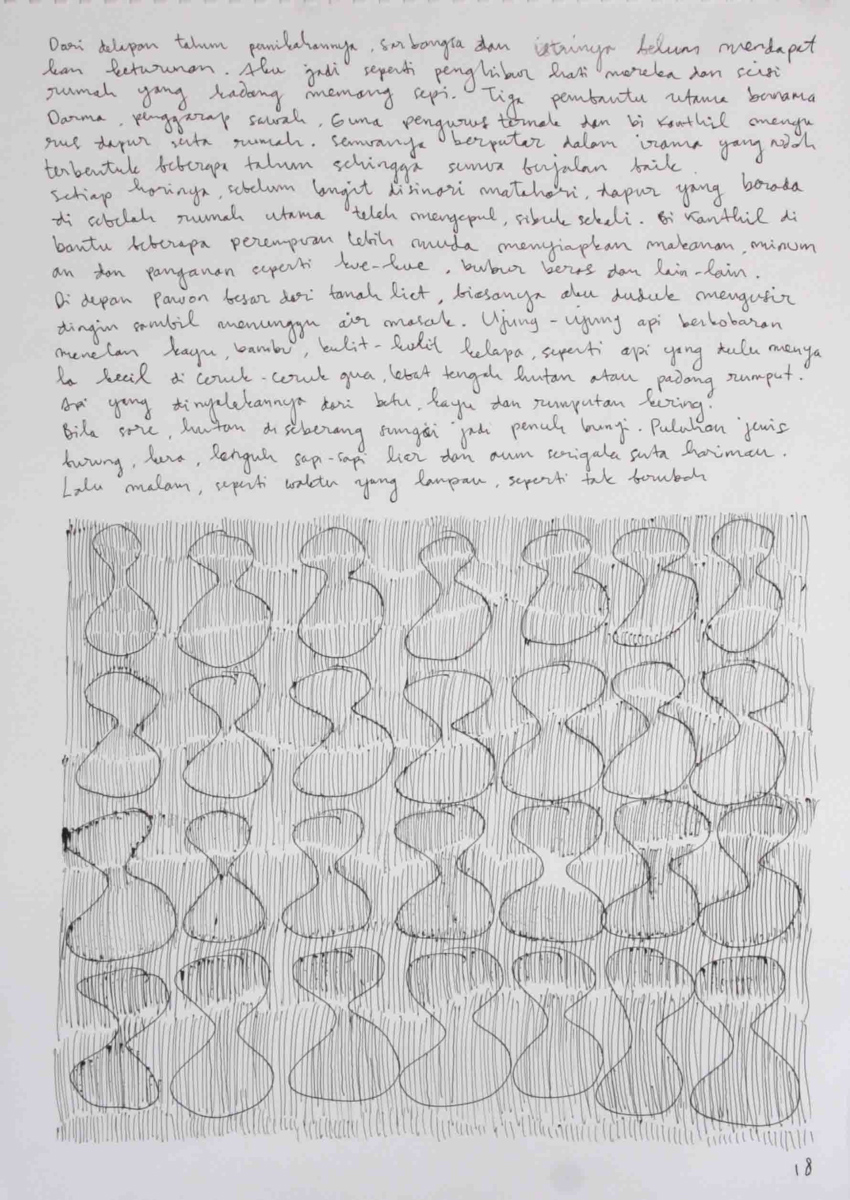 Dari delapan tahun pernikahannya, Sarbangsa dan istrinya belum mendapat
kan keturunan. Aku jadi seperti penghibur hati mereka dan seisi
rumah yang kadang memang sepi. Tiga pembantu utama bernama
Darma, penggarap sawah, Guna pengurus ternak dan bi Kanthil mengu
rus dapur serta rumah. Semuanya berputar dalam irama yang udah
terbentuk beberapa tahun sehingga semua berjalan baik.
Setiap harinya, sebelum langit disinari matahari, dapur yang berada
di sebelah rumah utama telah mengepul, sibuk sekali. Bi Kanthil di
bantu beberapa perempuan lebih muda menyiapkan makanan, minum
an dan panganan seperti kue-kue, bubur beras dan lain-lain.
Di depan Pawon besar dari tanah liet, biasanya aku duduk mengusir
dingin sambil menunggu air masak. Ujung-ujung api berkobaran
menelan kayu, bambu, kulit-kulit kelapa, seperti api yang dulu menya
la kecil di ceruk-ceruk gua, lebat tengah hutan atau padang rumput.
Api yang dinyalakannya dari batu, kayu dan rumputan kering.
Bila sore, hutan di seberang sungai jadi penuh bunyi. Puluhan jenis
burung, kera, lenguh sapi-sapi liar dan aum serigala serta harimau.
Lalu malam, seperti waktu yang lampau, seperti tak berubah
18